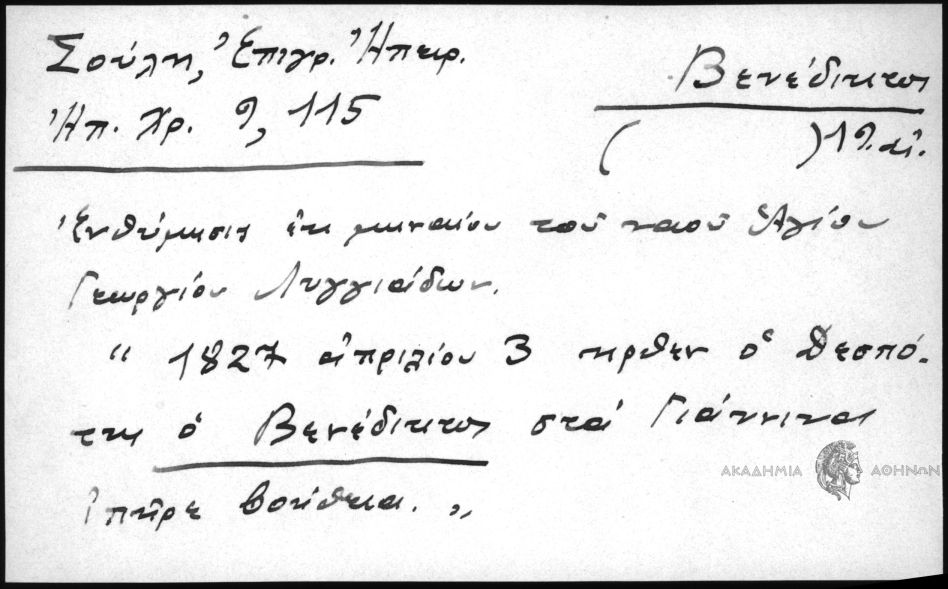 Σούλη, Ἐπιγρ. Ἠπειρ.
Ἠπ. Χρ. 9, 115
Βενέδικτος
( )19. αἰ.
Ἐνθύμησις ἐκ μηναίου τοῦ ναοῦ Ἁγίου
Γεωργίου Λυγγιάδων.
" 1827 ἀπριλίου 3 ηρθεν ὁ Δεσπό-
της ὁ Βενέδικτος στά Γιάννινα
ἐπῆρε βοήθεια. "
ΑΚΑΔΗΜΙΑ ΑΘΗΝΩΝ